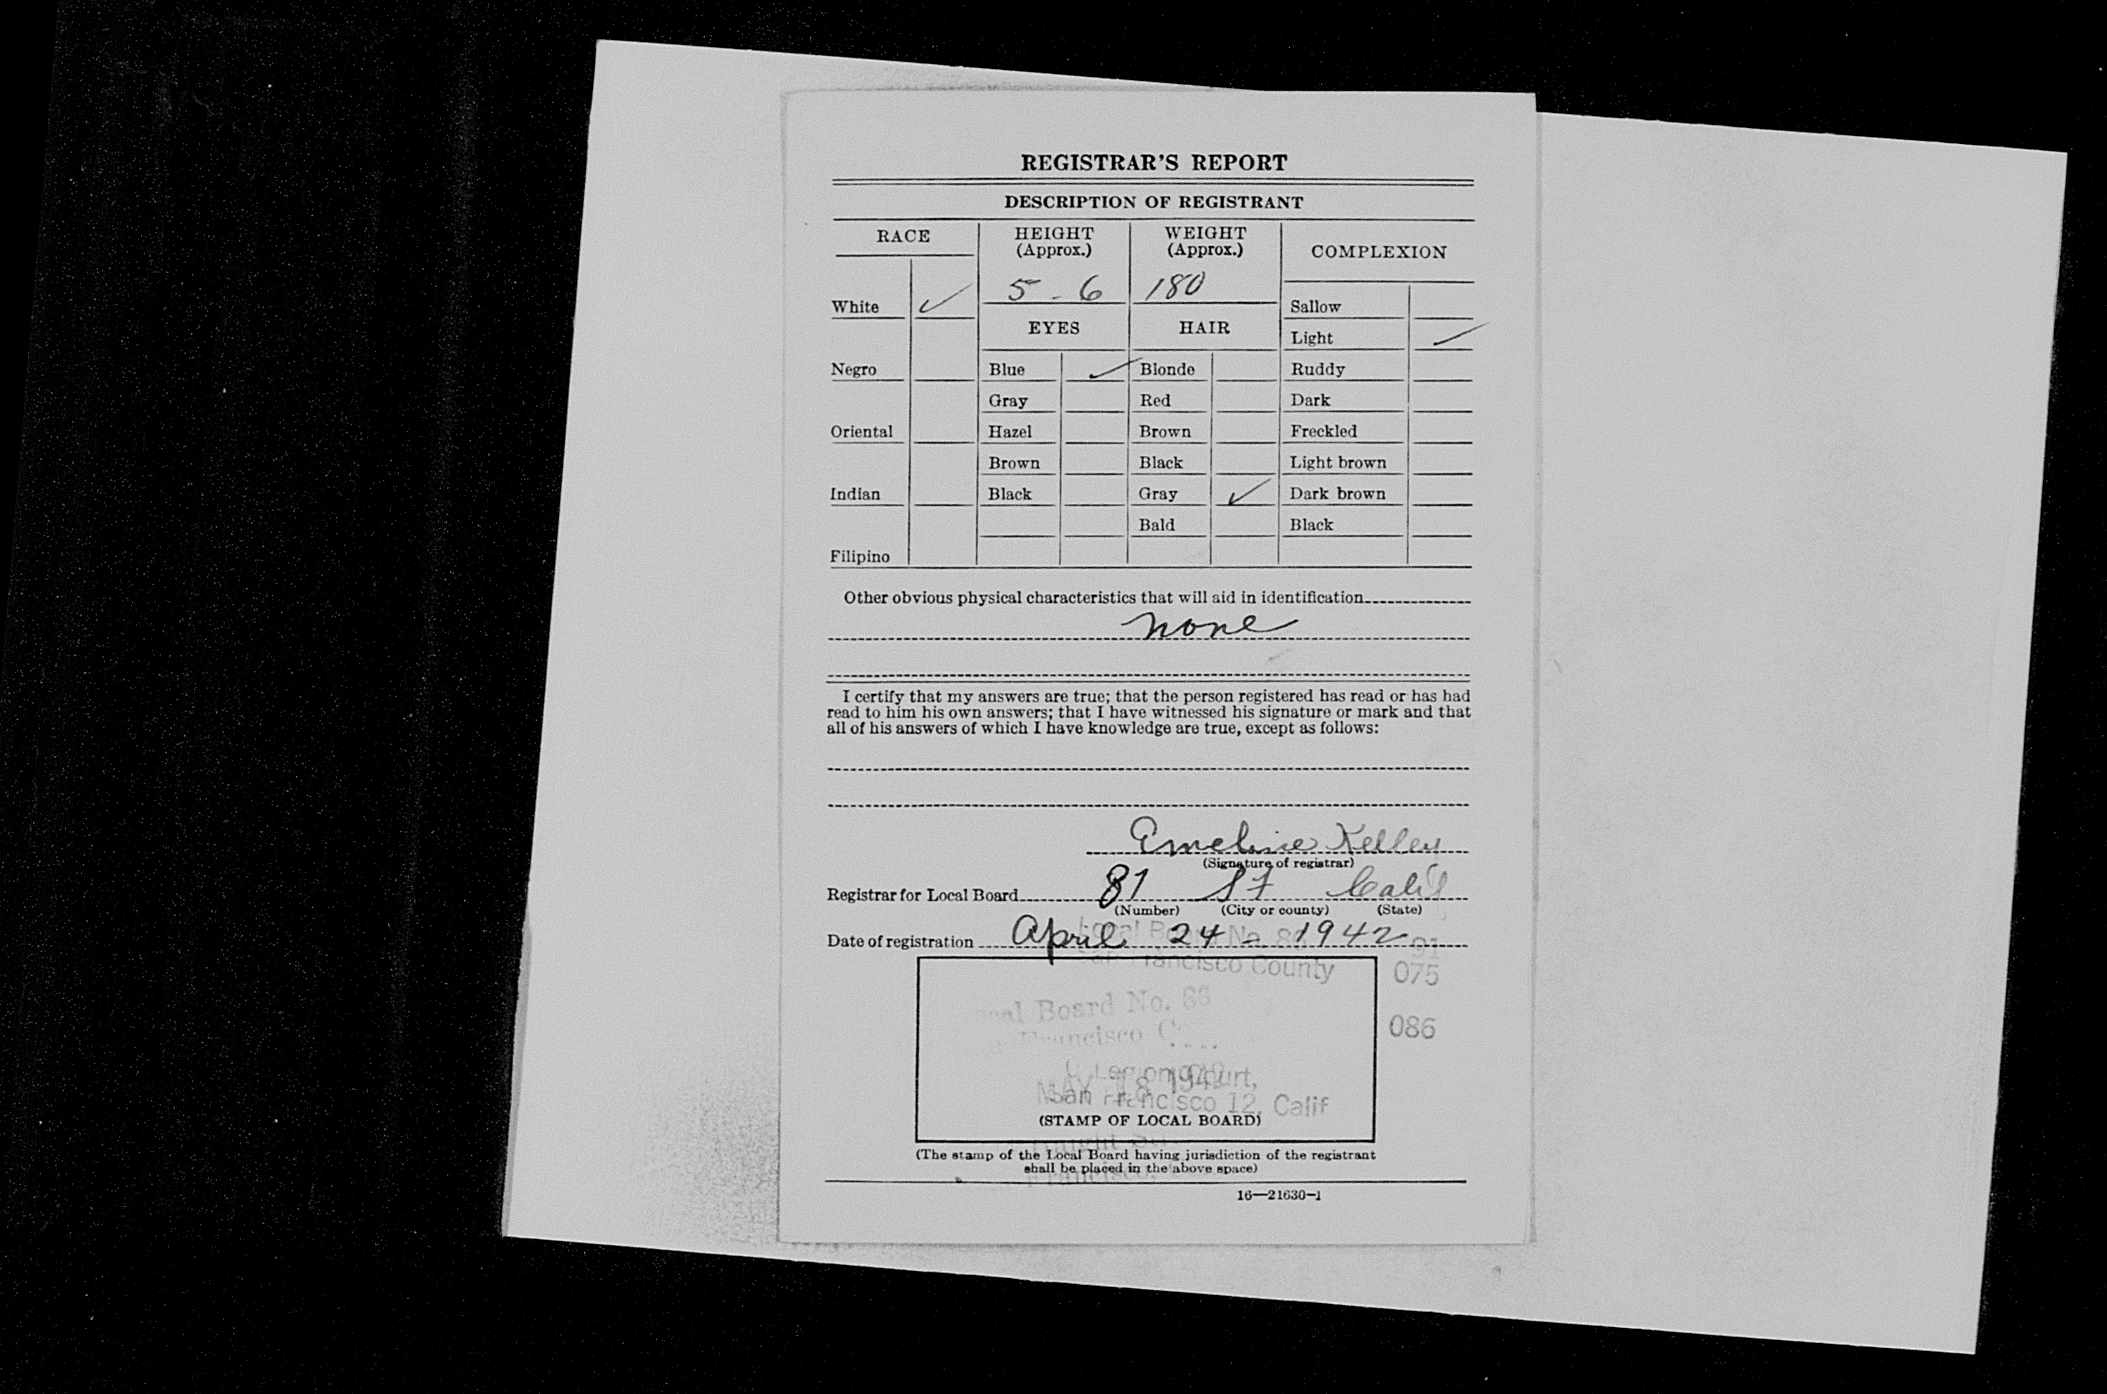 REGISTRAR'S REPORT
DESCRIPTION OF REGISTRANT
RACE
HEIGHT
(Approx.)
WEIGHT
(Approx.)
COMPLEXION
5 - 6
180
White ✓
Sallow
EYES
HAIR
Light ✓
Negro
Blue ✓
Blonde
Ruddy
Gray
Red
Dark
Oriental
Hazel
Brown
Freckled
Brown
Black
Light brown
Indian
Black
Gray ✓
Dark brown
Bald
Black
Filipino
Other obvious physical characteristics that will aid in identification
none
I certify that my answers are true; that the person registered has read or has had
read to him his own answers; that I have witnessed his signature or mark and that
all of his answers of which I have knowledge are true, except as follows:
Emeline Kelley
(Signature of registrar)
Registrar for Local Board 81 SF Calif
(Number) (City or county) (State)
Date of registration April 24 - 1942
Local Board No. 91
Francisco County 075
Board No. 86
086
Francisco
Court,
MAY 1942
San Francisco 12, Calif
(STAMP OF LOCAL BOARD)
(The stamp of the Local Board having jurisdiction of the registrant
shall be placed in the above space)
Francisco,
16—21630-1